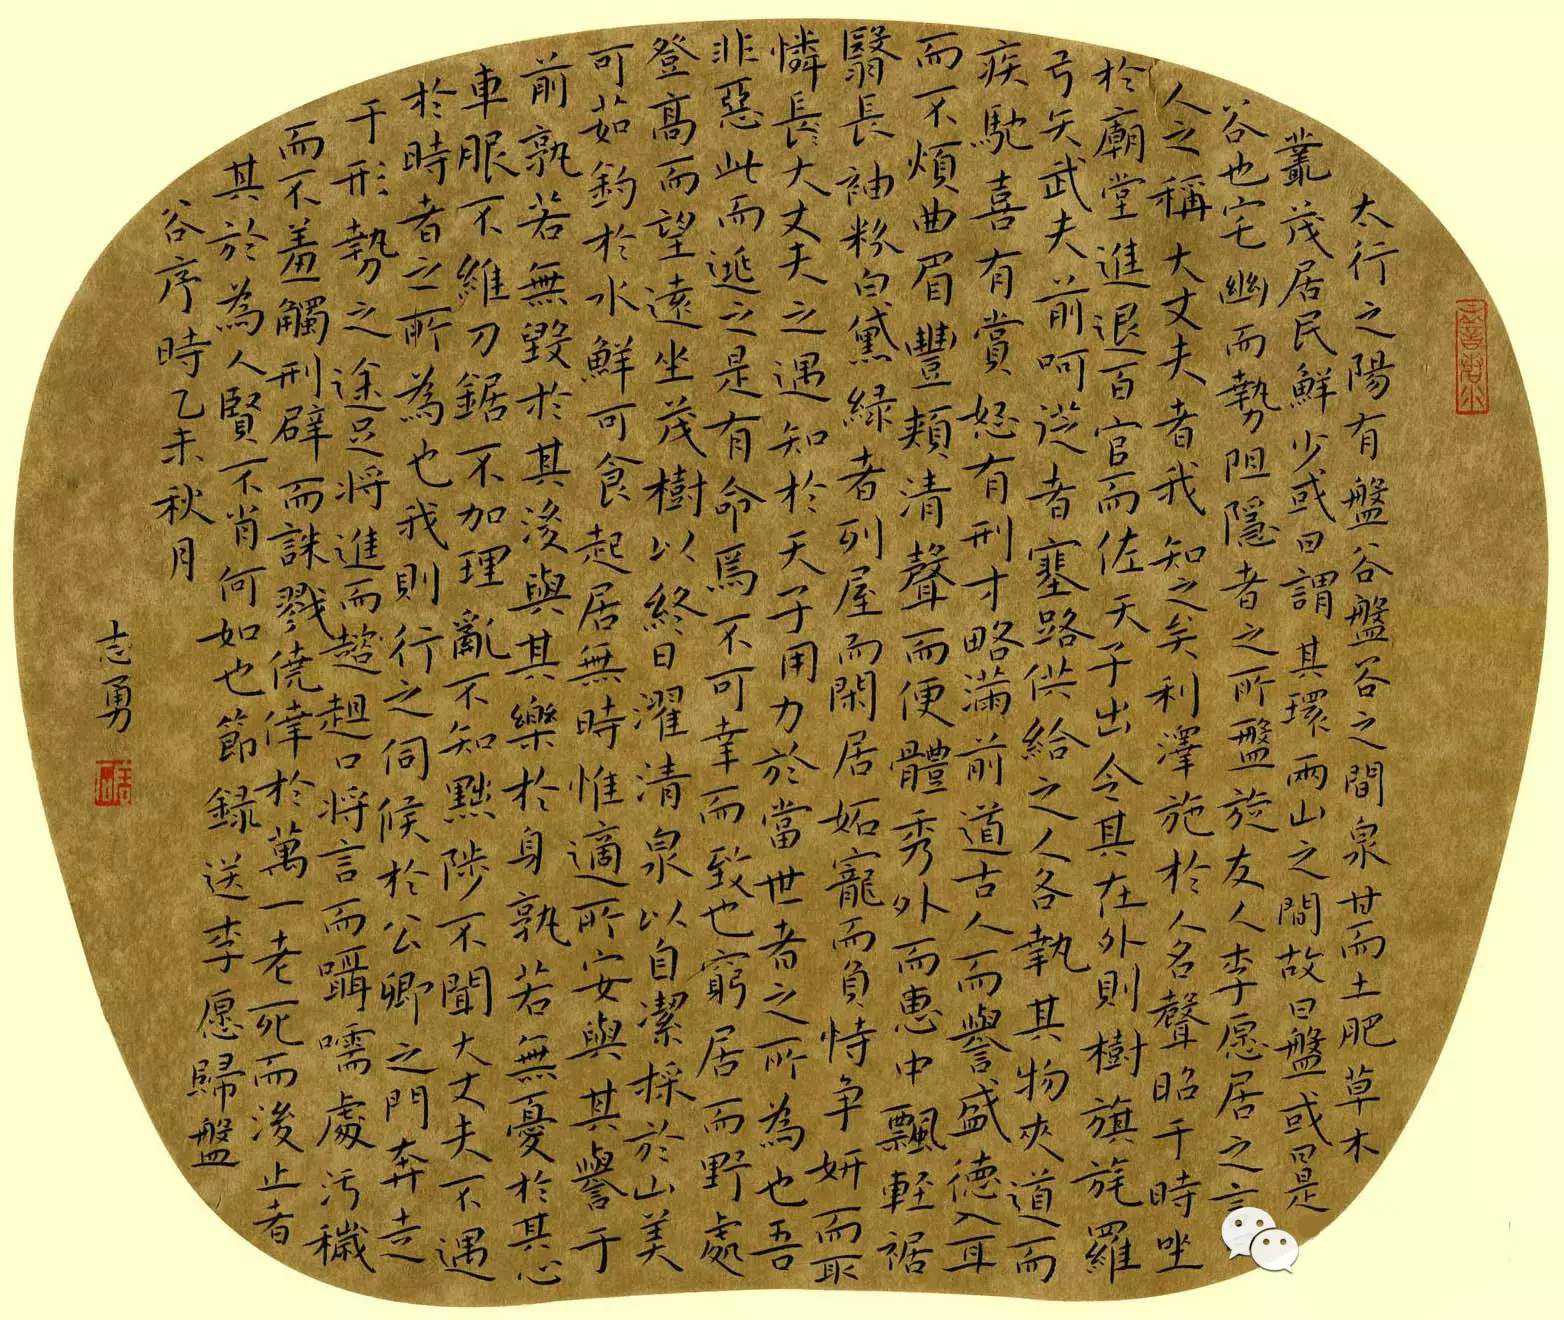 太行之陽有盤谷盤谷之間泉甘而土肥草木
叢茂居民鮮少或曰謂其環兩山之間故曰盤或曰是
谷也宅幽而勢阻隱者之所盤旋友人李愿居之言
人之稱大丈夫者我知之矣利澤施於人名聲昭于時坐
於廟堂進退百官而佐天子出令其在外則樹旗旄羅
弓矢武夫前呵從者塞路供給之人各執其物夾道而
疾馳喜有賞怒有刑才略滿前道古人而譽盛德入耳
而不煩曲眉豐頰清聲而便體秀外而惠中飄輕裾
翳長袖粉白黛綠者列屋而閑居妬寵而負恃争妍而取
憐長大丈夫之遇知於天子用力於當世者之所為也吾
非惡此而逃之是有命焉不可幸而致也窮居而野處
登高而望遠坐茂樹以終日濯清泉以自潔採於山美
可茹釣於水鮮可食起居無時惟適所安與其譽于
前孰若無毀於其後與其樂於身孰若無憂於其心
車服不維刀鋸不加理亂不知黜陟不聞大丈夫不遇
於時者之所為也我則行之伺候於公卿之門奔走
于形勢之途足將進而趑趄口將言而囁嚅處污穢
而不羞觸刑辟而誅戮僥倖於萬一老死而後止者
其於為人賢不肖何如也節録送李愿歸盤
谷序時乙未秋月
志勇